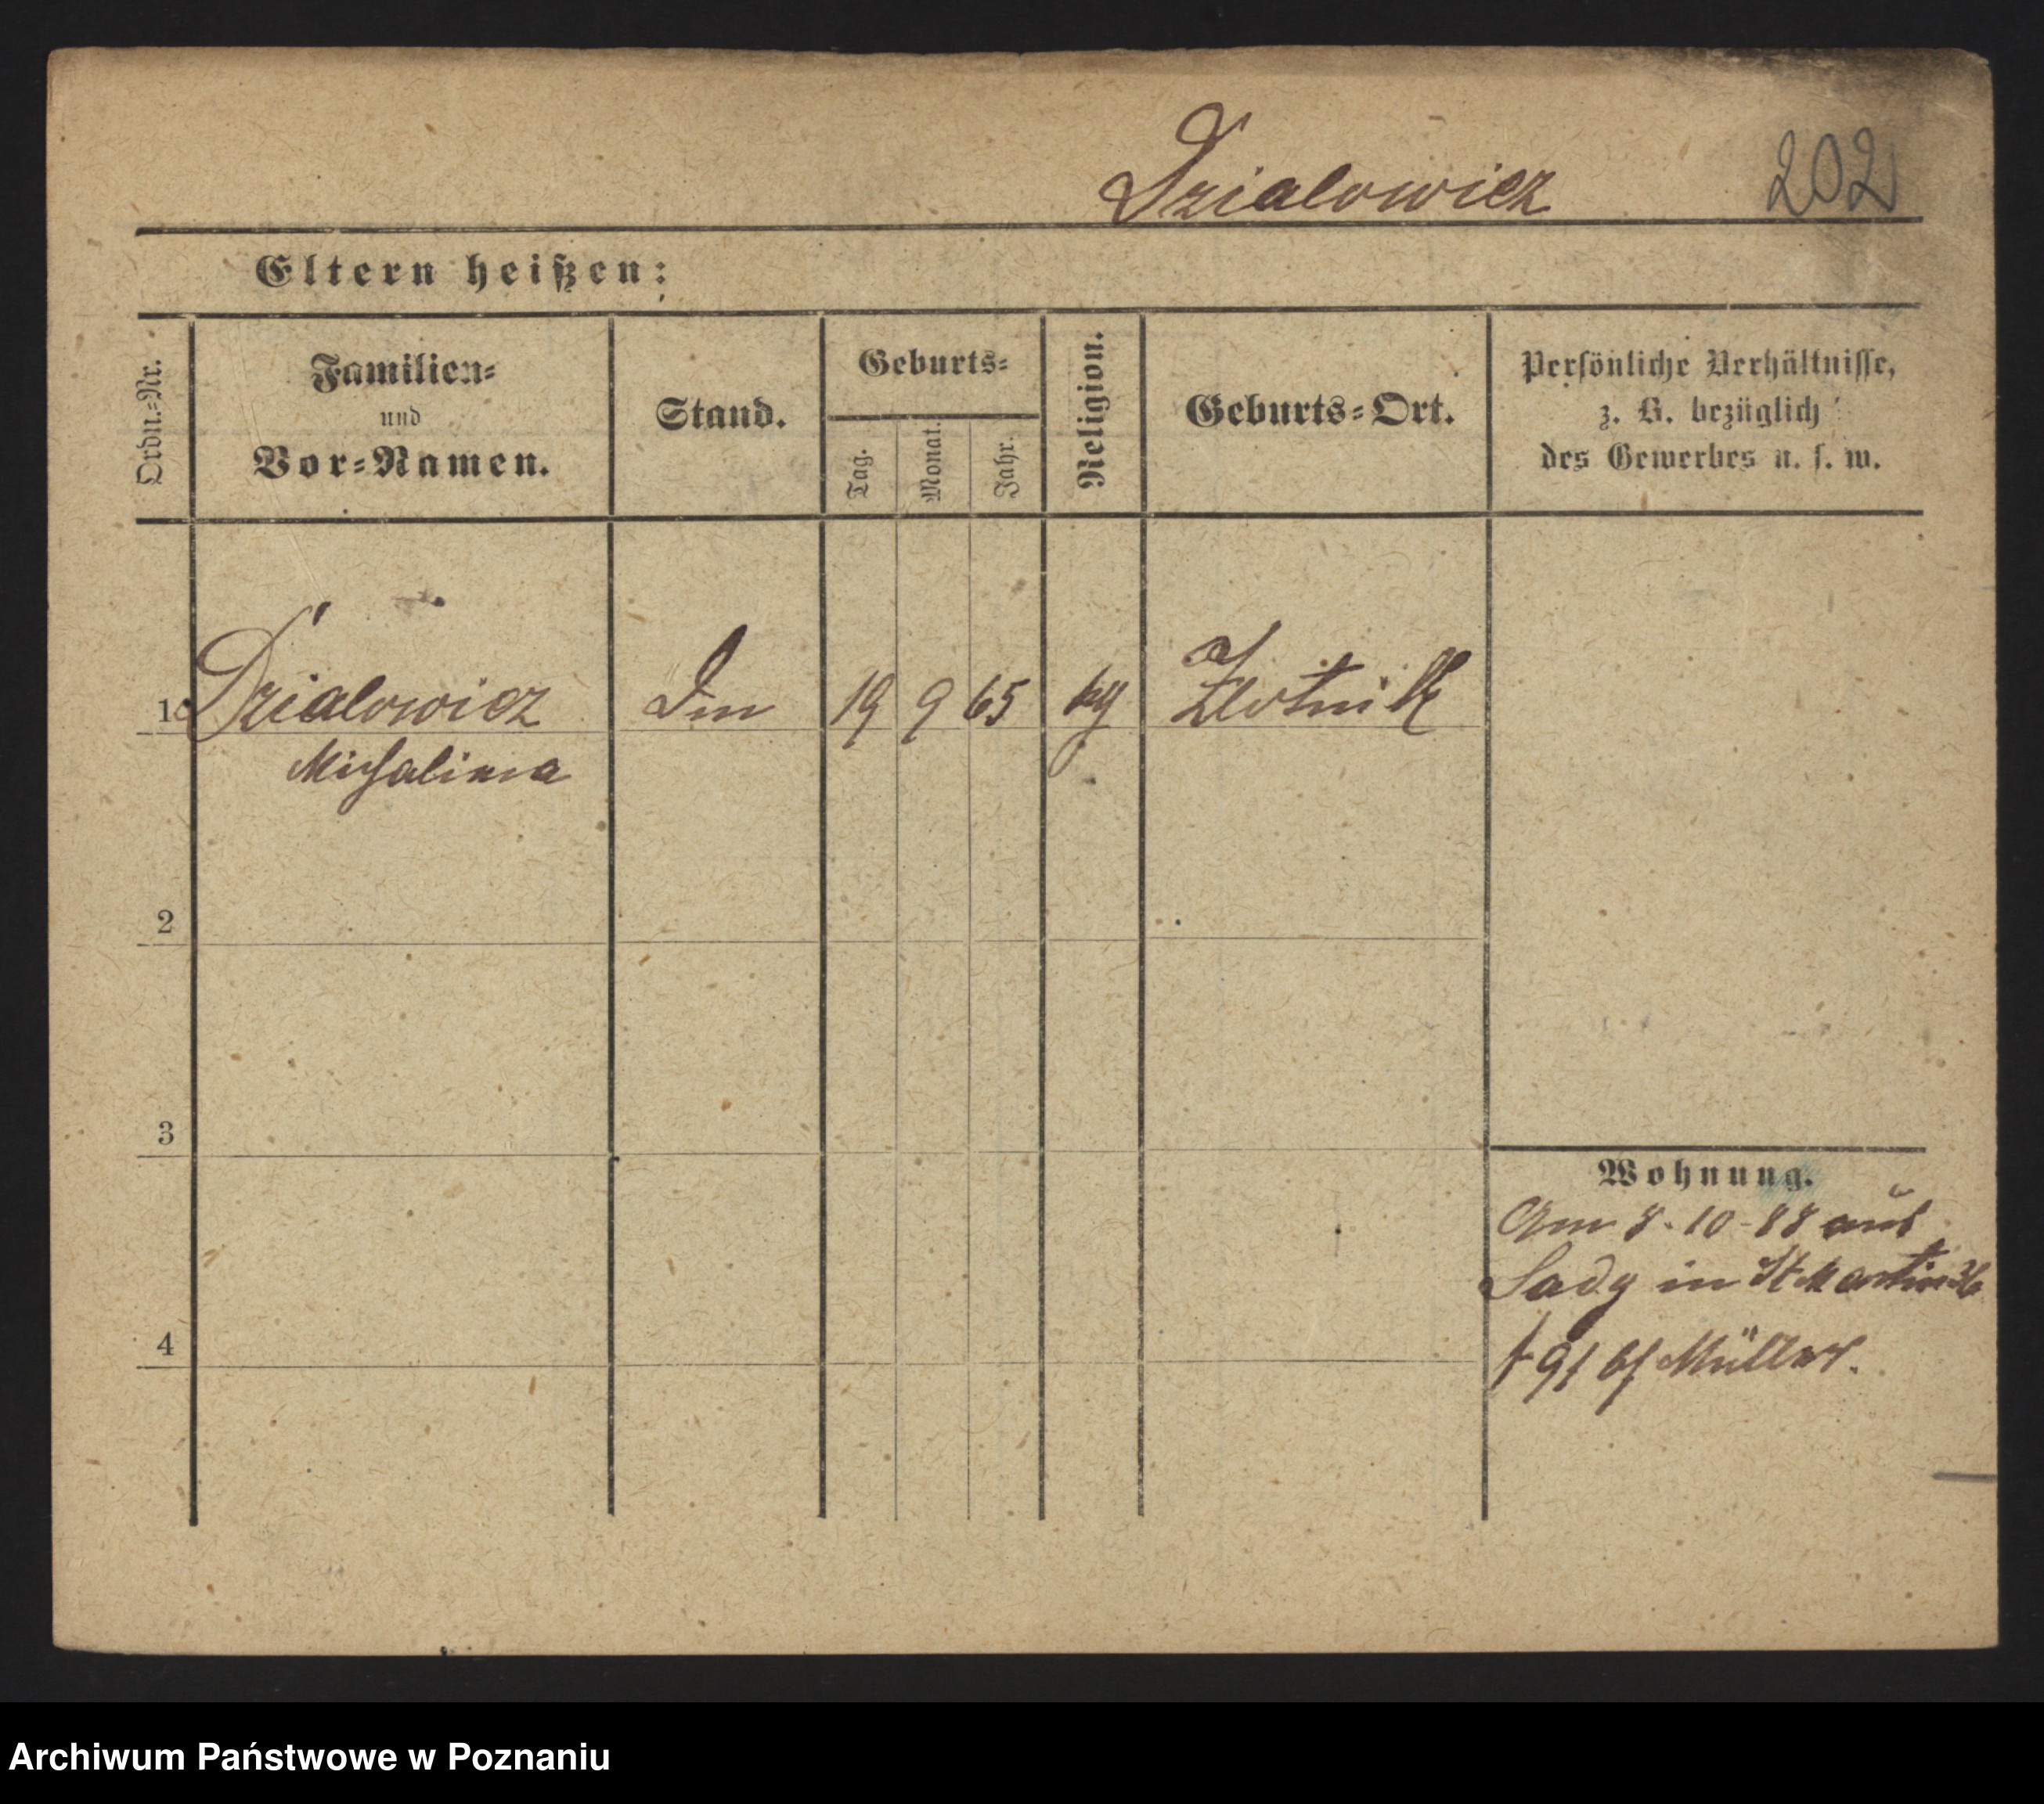 Dzialowicz 202
Eltern heißen:
Ordn.-Nr.
Familien-
und
Vor-Namen.
Stand.
Geburts-
Tag.
Monat.
Jahr.
Religion.
Geburts-Ort.
Persönliche Verhältnisse,
z. B. bezüglich
des Gewerbes u. s. w.
1 Dzialowicz 19 9 65 Zlotnik
Michalina
2
3
4
Wohnung.
Am 8-10-88 aus
Sady in St Martin 36
91 bei Müller.
Archiwum Państwowe w Poznaniu